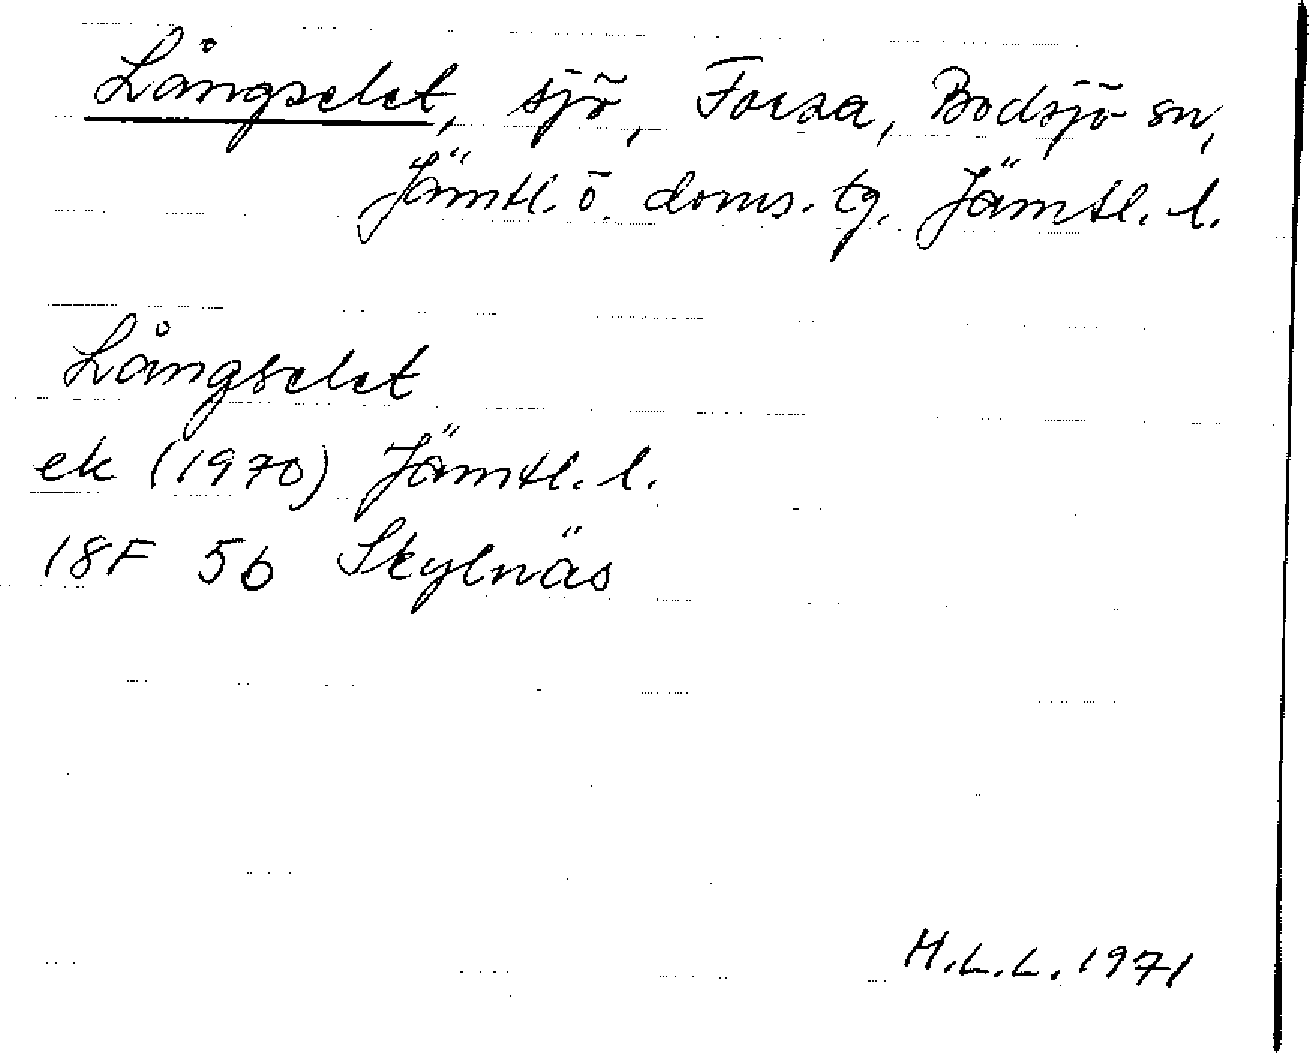 Långselet, sjö, Forsa, Bodsjö sn,
Jämtl. ö. doms. tg. Jämtl. l.
Långselet
ek (1970) Jämtl. l.
18F 5b Skylnäs
H.L.L. 1971